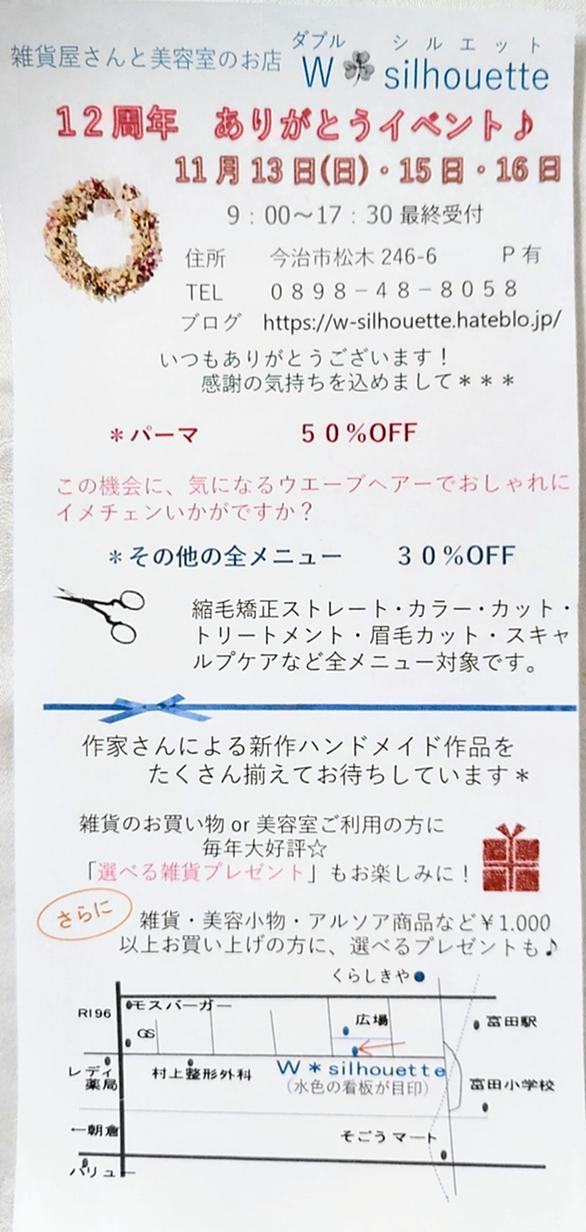 ダブル シルエット
雑貨屋さんと美容室のお店 W silhouette
12周年 ありがとうイベント♪
11月13日(日)・15日・16日
9:00～17:30 最終受付
住所 今治市松木 246-6 P有
TEL 0898-48-8058
ブログ https://w-silhouette.hateblo.jp/
いつもありがとうございます！
感謝の気持ちを込めまして＊＊＊
＊パーマ 50%OFF
この機会に、気になるウエーブヘアーでおしゃれに
イメチェンいかがですか？
＊その他の全メニュー 30%OFF
縮毛矯正ストレート・カラー・カット・
トリートメント・眉毛カット・スキャ
ルプケアなど全メニュー対象です。
作家さんによる新作ハンドメイド作品を
たくさん揃えてお待ちしています＊
雑貨のお買い物 or 美容室ご利用の方に
毎年大好評☆
「選べる雑貨プレゼント」もお楽しみに！
さらに
雑貨・美容小物・アルソア商品など￥1.000
以上お買い上げの方に、選べるプレゼントも♪
くらしきや
R196
モスバーガー
GS
広場
富田駅
レディ
薬局
村上整形外科
W＊silhouette
(水色の看板が目印)
富田小学校
←朝倉
そごうマート
バリュー